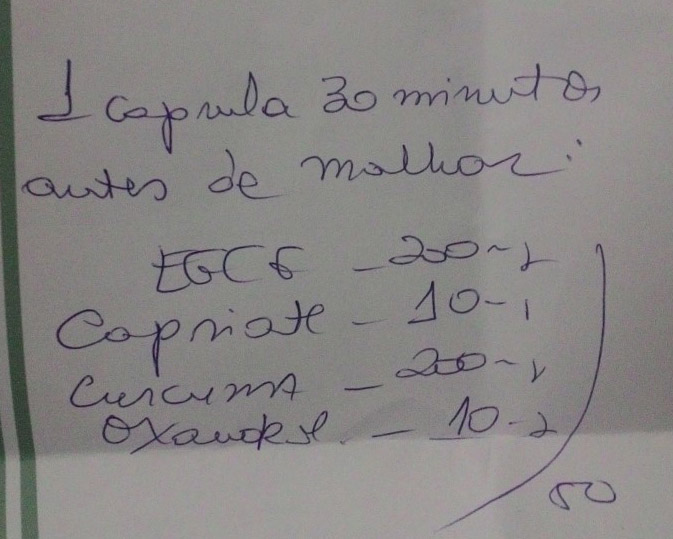 1 capsula 30 minutos
antes de malhar:
EGCG - 200 -
Capsiate - 10 -
Curcuma - 200 -
Oxandrol. - 10 -
50